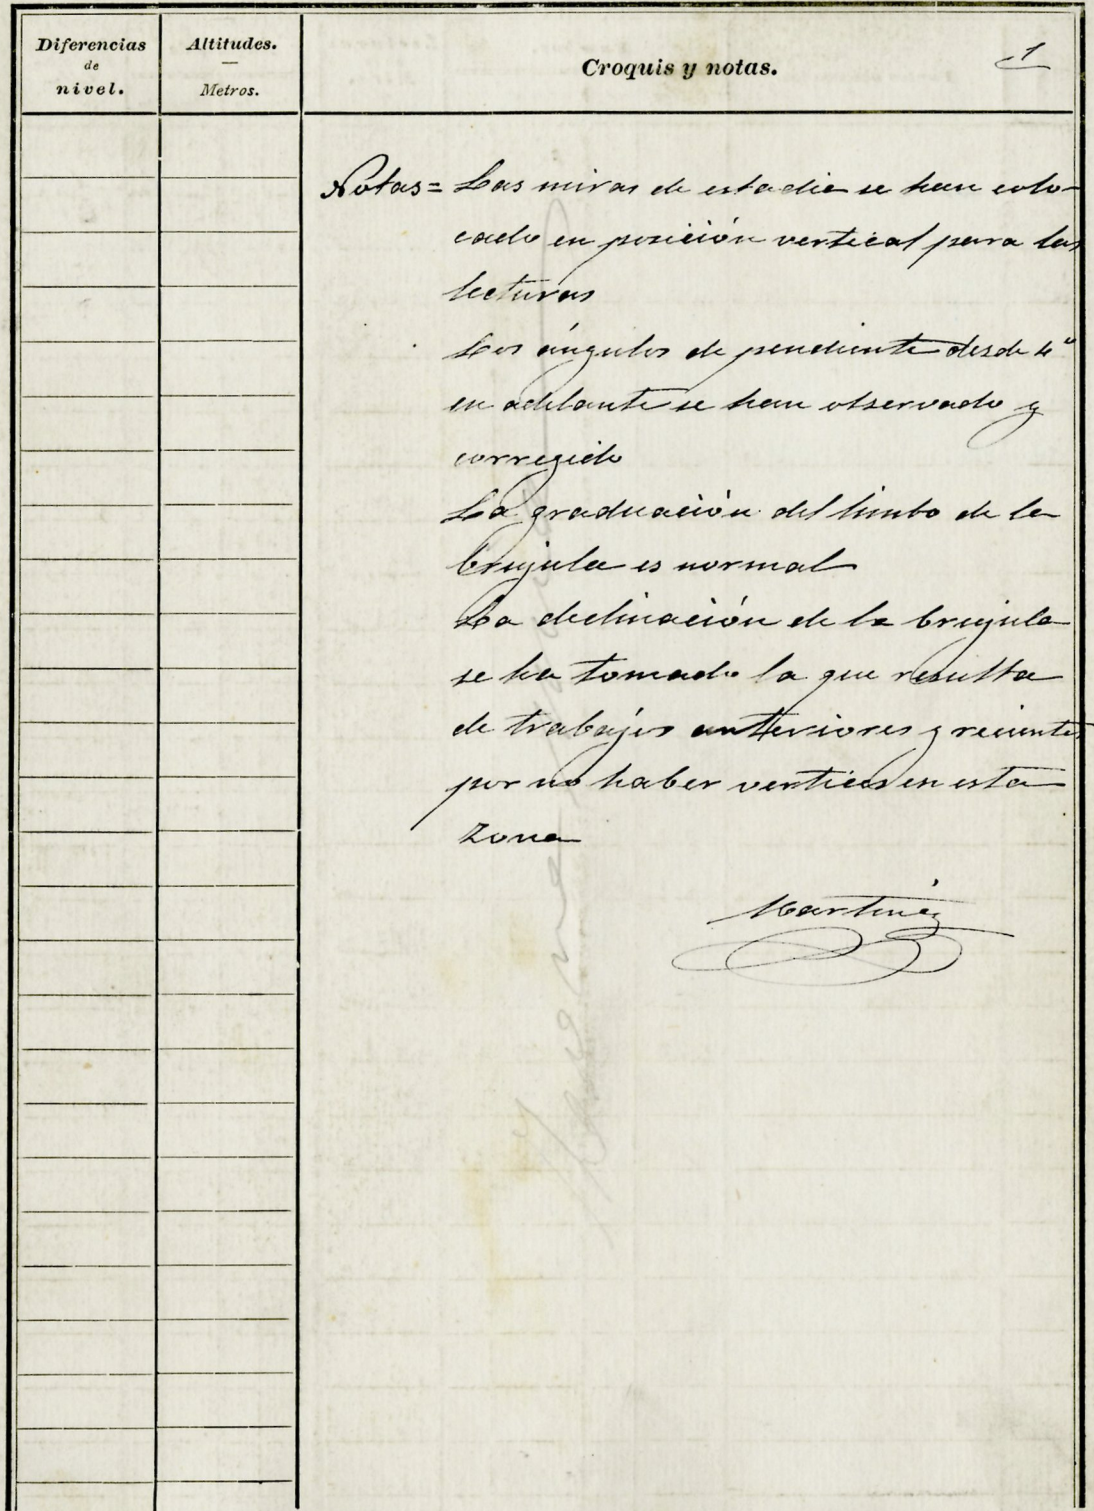 Diferencias
de
nivel.
Altitudes.
Metros.
Croquis y notas.
1
Notas = Las miras de estadia se han colo-
cado en posición vertical para las
lecturas
Los ángulos de pendiente desde 4°
en adelante se han observado y
corregido
La graduación del limbo de la
brujula es normal
La declinación de la brujula
se ha tomado la que resulta
de trabajos anteriores y recientes
por no haber vertices en esta
zona
Martinez